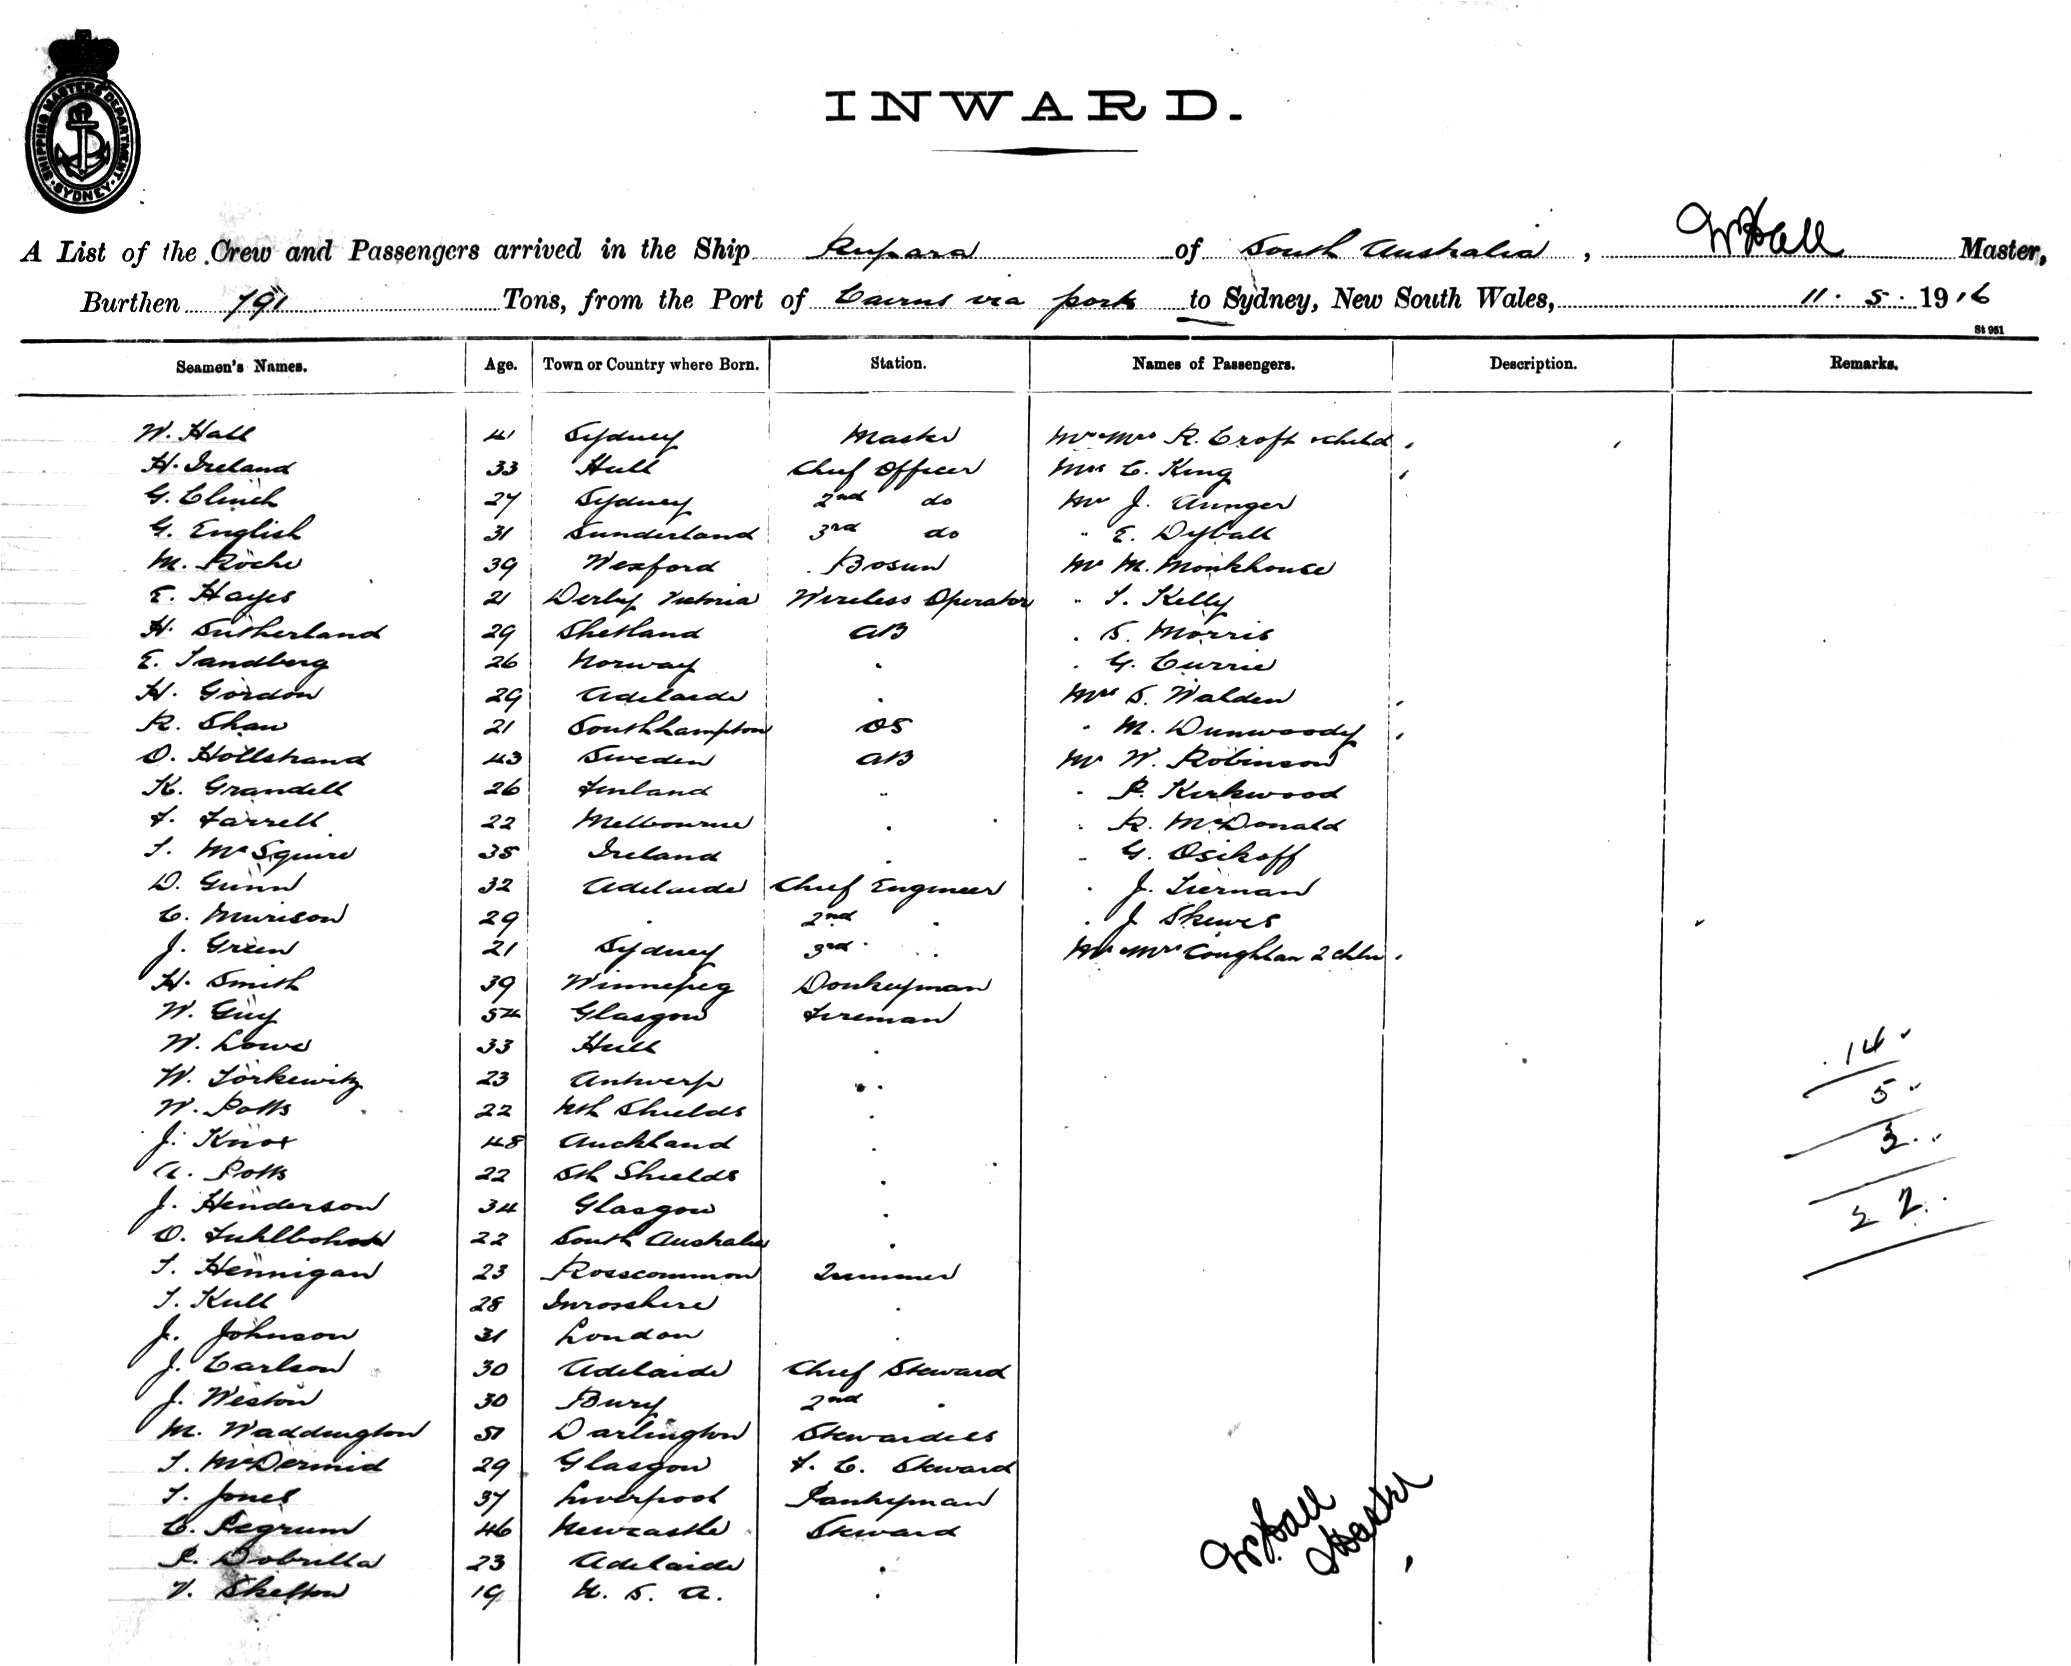 SHIPPING MASTERS DEPARTMENT SYDNEY
INWARD.
A List of the Crew and Passengers arrived in the Ship Rupara of South Australia, W Hall Master,
Burthen 791 Tons, from the Port of Cairns via ports to Sydney, New South Wales, 11. 5. 1916
St 961
Seamen's Names. Age. Town or Country where Born. Station. Names of Passengers. Description. Remarks.
W. Hall 41 Sydney Master Mr & Mrs R. Croft & child
H. Ireland 33 Hull Chief Officer Mrs C. King
G. Clinch 27 Sydney 2nd do Mr J. Aunger
G. English 31 Sunderland 3rd do " E. Dyball
M. Roche 39 Wexford Bosun Mr M. Monkhouse
E. Hayes 21 Derby Victoria Wireless Operator " T. Kelly
H. Sutherland 29 Shetland AB " S. Morris
E. Sandberg 26 Norway " " G. Currie
H. Gordon 29 Adelaide " Mrs S. Walden
R. Shaw 21 Southhampton OS " M. Dunwoody
O. Hollstrand 43 Sweden AB Mr W. Robinson
K. Grandell 26 Finland " " P. Kirkwood
F. Farrell 22 Melbourne " " R. McDonald
T. McSquire 35 Ireland " " G. Osikoff
D. Gunn 32 Adelaide Chief Engineer " J. Tiernan
C. Murison 29 " 2nd " " J. Skewes
J. Green 21 Sydney 3rd " Mr & Mrs Coughlan 2 chldn
H. Smith 39 Winnepeg Donkeyman
W. Guy 54 Glasgow Fireman
W. Lowe 33 Hull "
W. Torkewitz 23 Antwerp " 14
W. Potts 22 Nth Shields " 5
J. Knox 48 Auckland " 3
A. Potts 22 Sth Shields "
J. Henderson 34 Glasgow " 22
O. 22 South Australia "
T. Hennigan 23 Rosscommon Trimmer
T. Kull 28 "
J. Johnson 31 London "
J. Carlson 30 Adelaide Chief Steward
J. Weston 30 Bury 2nd "
M. Waddington 51 Darlington Stewardess
T. McDermid 29 Glasgow F. C. Steward
T. Jones 37 Liverpool Pantryman
C. Pegrum 46 Newcastle Steward
P. Dobrilla 23 Adelaide "
V. Skelton 19 U. S. A. "
W Hall
Master